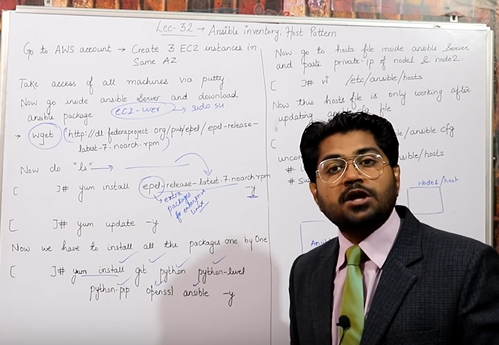 Lec-32 → Ansible inventory, Host Pattern
Go to AWS account → Create 3 EC2 instances in
Same AZ
Take access of all machines via putty
Now go inside ansible server and download
ansible package
ec2-user → sudo su
→ wget http://dl.fedoraproject.org/pub/epel/epel-release-
latest-7.noarch.rpm
Now do "ls"
[ ]# yum install epel-release-latest-7.noarch.rpm
-y
extra
packages
for enterprise
linux
[ ]# yum update -y
Now we have to install all the packages one by One
[ ]# yum install git python python-level
python-pip openssl ansible -y
Now go to hosts file inside ansible server
and paste private-ip of node1 & node2
[ ]# vi /etc/ansible/hosts
Now this hosts file is only working after
updating
file
/ansible.cfg
uncom
/hosts
# i
# su
Node1/host
Ans